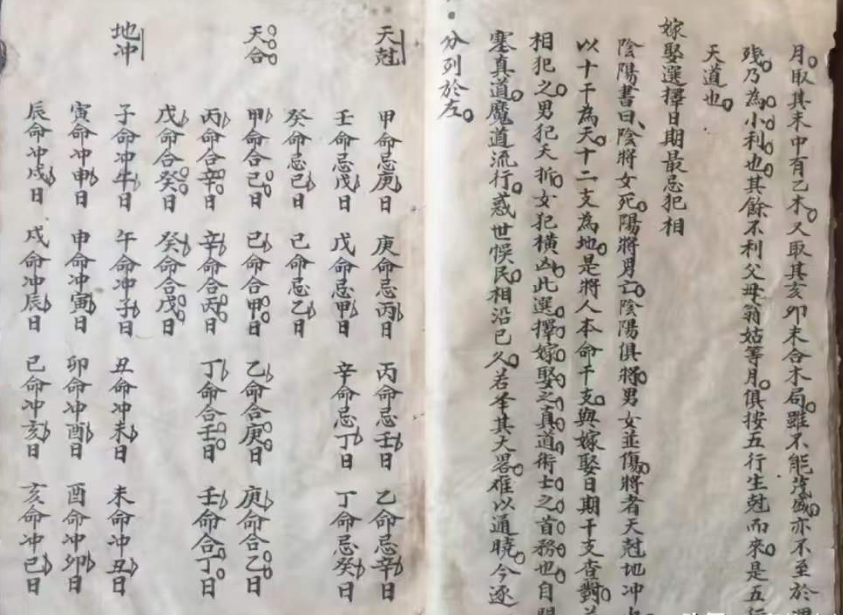 月取其未中有乙木又取其亥卯未合木局雖不能茂盛亦不至於
殘乃為小利也其餘不利父母翁姑等月俱按五行生尅而來是五行
天道也
嫁娶選擇日期最忌犯相
陰陽書曰陰將女死陽將男亡陰陽俱將男女並傷將者天尅地冲
以十干為天十二支為地是將人本命干支與嫁娶日期干支查對
相犯之男犯夭折女犯橫凶此選擇嫁娶之真道術士之首務也自
塞真道魔道流行惑世悞民相沿已久若举其大畧难以通曉今逐
分列於左
天尅 甲命忌庚日 庚命忌丙日 丙命忌壬日 乙命忌辛日
壬命忌戊日 戊命忌甲日 辛命忌丁日 丁命忌癸日
癸命忌己日 己命忌乙日
天合 甲命合己日 己命合甲日 乙命合庚日 庚命合乙日
丙命合辛日 辛命合丙日 丁命合壬日 壬命合丁日
戊命合癸日 癸命合戊日
地冲 子命冲牛日 午命冲子日 丑命冲未日 未命冲丑日
寅命冲申日 申命冲寅日 卯命冲酉日 酉命冲卯日
辰命冲戌日 戌命冲辰日 巳命冲亥日 亥命冲巳日